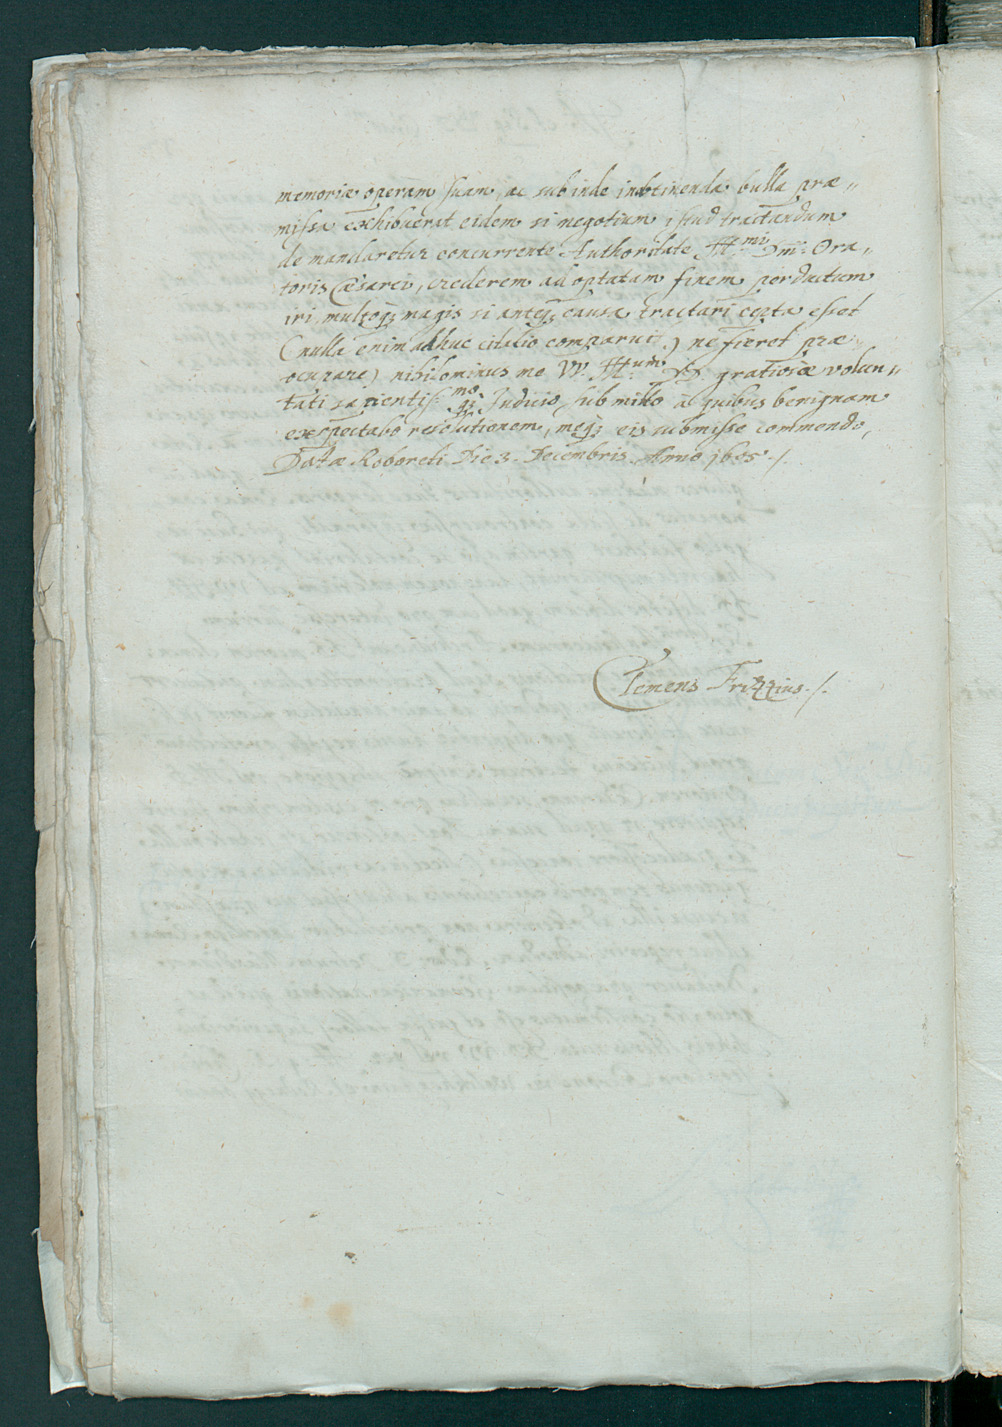 memoriæ operam suam, ac subinde in obtinenda bulla præ„
missa exhibuerat eidem si negotium istud tractandum
demandaretur concurrente Authoritate Ill:mi Dni: Ora„
toris Cæsarei, crederem ad optatam finem perductum
iri, multoq; magis si anteq; causa tractari cœpta esset
(nulla enim adhuc citatio comparuit) ne fieret præ„
ocupare) nihilominus me VV. Ill:um DD. gratiosæ volun„
tati sapientiss:moq; Judicio, submitto a quibus benignam
exspectabo resolutionem, meq; eis submisse commendo,
Datæ Roboreti Die 3. Decembris Anno 1605./.
Clemens Frizzius./.